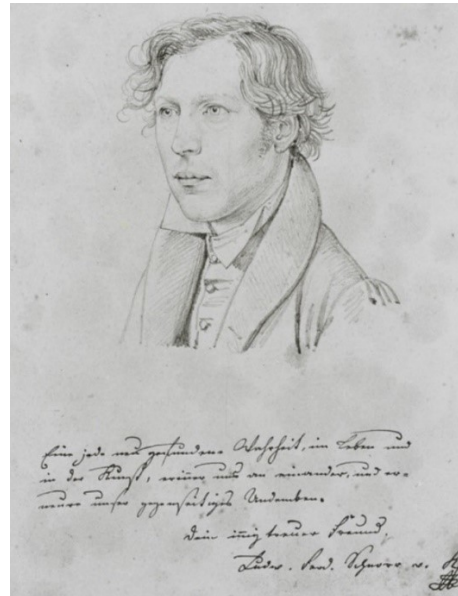 Eine jede neu gefundene Wahrheit, im Leben und
in der Kunst, erinner uns an einander, und er-
neure unser gegenseitiges Andenken.
Dein innig treuer Freund,
Ludw. Ferd. Schnorr v. K